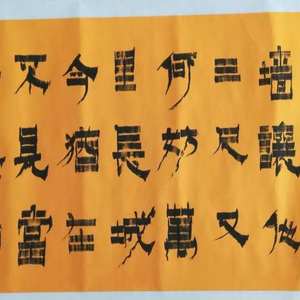 墙讓他
三尺又
何妨萬
里長城
今猶在
不見當